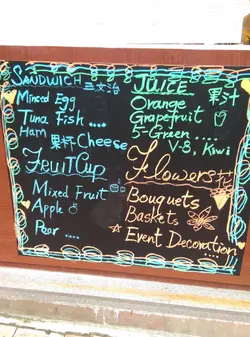 SANDWICH 三文治
Minced Egg
Tuna Fish ....
Ham 果杯 Cheese
FRUIT CUP
Mixed Fruit
Apple
Pear ....
JUICE 果汁
Orange
Grapefruit
5-Green ....
V-8, Kiwi
Flowers 花
Bouquets
Baskets
Event Decoration
....